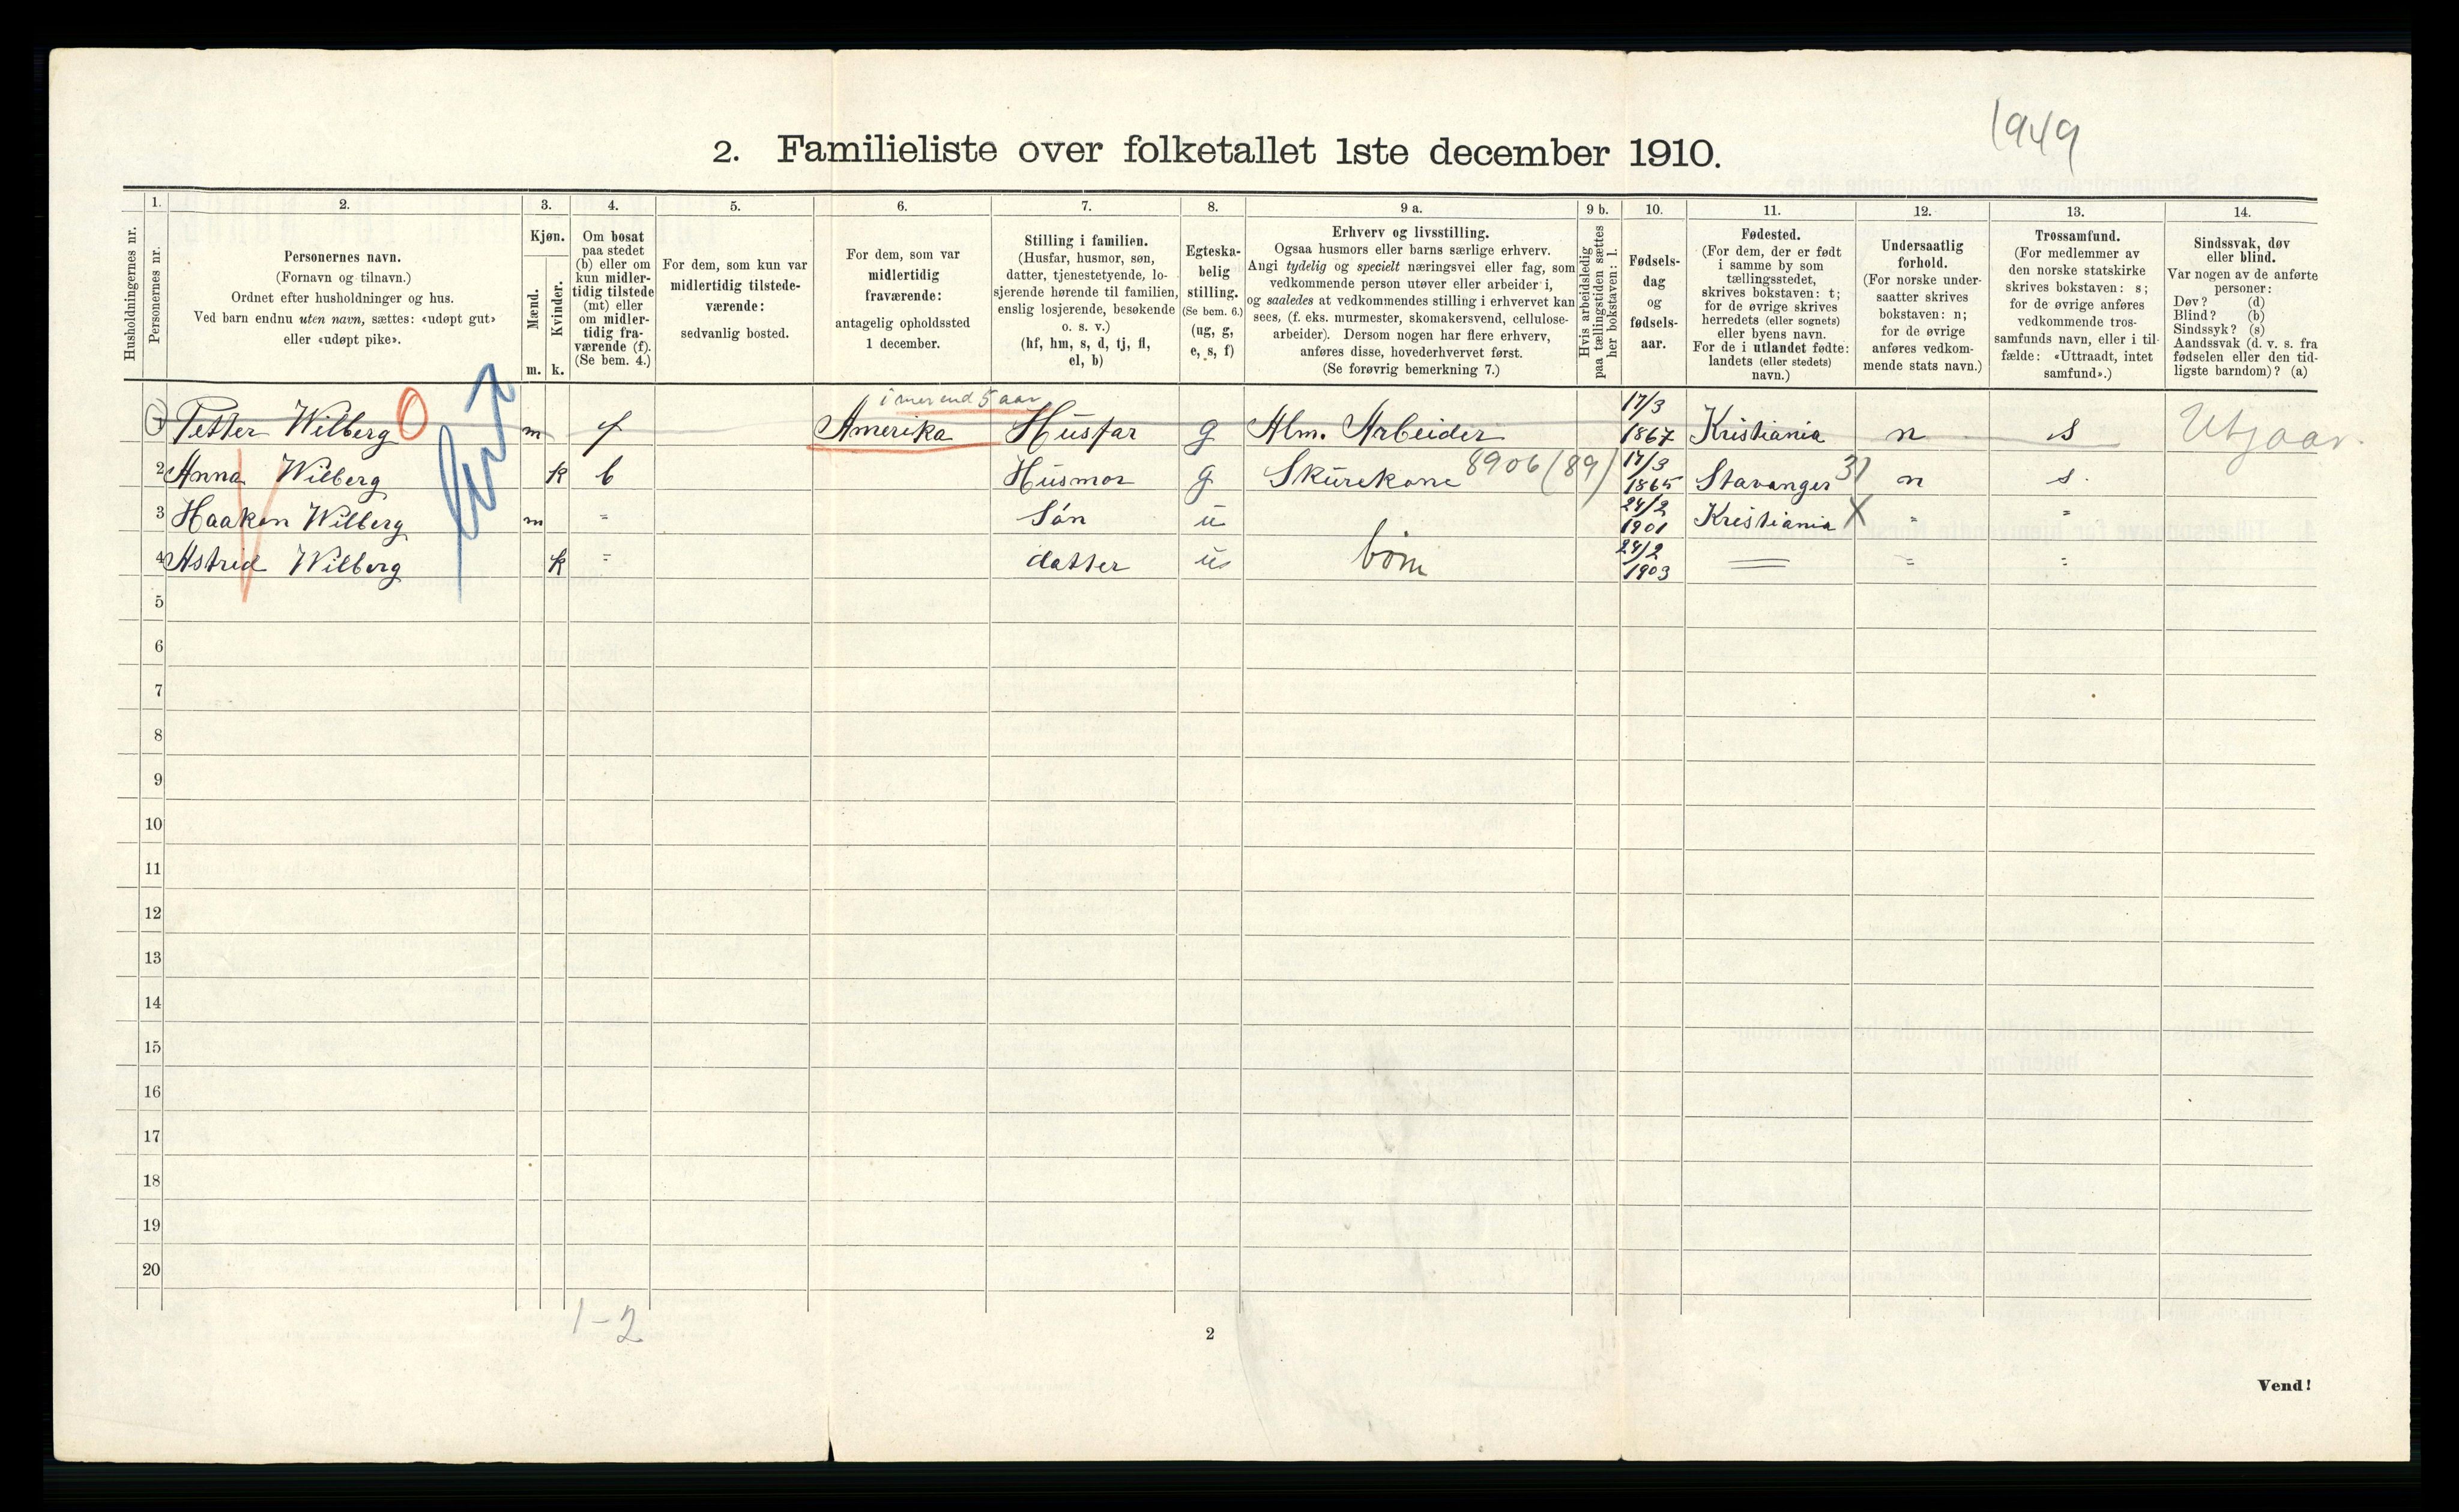 1949
2. Familieliste over folketallet 1ste december 1910.
Husholdningernes nr.
1.
Personernes nr.
2.
Personernes navn.
(Fornavn og tilnavn.)
Ordnet efter husholdninger og hus.
Ved barn endnu uten navn, sættes: «udøpt gut»
eller «udøpt pike».
3.
Kjøn.
Mænd.
Kvinder.
m. k.
4.
Om bosat
paa stedet
(b) eller om
kun midler-
tidig tilstede
(mt) eller
om midler-
tidig fra-
værende (f).
(Se bem. 4.)
5.
For dem, som kun var
midlertidig tilstede-
værende:
sedvanlig bosted.
6.
For dem, som var
midlertidig
fraværende:
antagelig opholdssted
1 december.
7.
Stilling i familien.
(Husfar, husmor, søn,
datter, tjenestetyende, lo-
sjerende hørende til familien,
enslig losjerende, besøkende
o. s. v.)
(hf, hm, s, d, tj, fl,
el, b)
8.
Egteska-
belig
stilling.
(Se bem. 6.)
(ug, g,
e, s, f)
9 a.
Erhverv og livsstilling.
Ogsaa husmors eller barns særlige erhverv.
Angi tydelig og specielt næringsvei eller fag, som
vedkommende person utøver eller arbeider i,
og saaledes at vedkommendes stilling i erhvervet kan
sees, (f. eks. murmester, skomakersvend, cellulose-
arbeider). Dersom nogen har flere erhverv,
anføres disse, hovederhvervet først.
(Se forøvrig bemerkning 7.)
9 b.
Hvis arbeidsledig
paa tællingstiden sættes
her bokstaven: l.
10.
Fødsels-
dag
og
fødsels-
aar.
11.
Fødested.
(For dem, der er født
i samme by som
tællingsstedet,
skrives bokstaven: t;
for de øvrige skrives
herredets (eller sognets)
eller byens navn.
For de i utlandet fødte:
landets (eller stedets)
navn.)
12.
Undersaatlig
forhold.
(For norske under-
saatter skrives
bokstaven: n;
for de øvrige
anføres vedkom-
mende stats navn.)
13.
Trossamfund.
(For medlemmer av
den norske statskirke
skrives bokstaven: s;
for de øvrige anføres
vedkommende tros-
samfunds navn, eller i til-
fælde: «Uttraadt, intet
samfund».)
14.
Sindssvak, døv
eller blind.
Var nogen av de anførte
personer:
Døv? (d)
Blind? (b)
Sindssyk? (s)
Aandssvak (d. v. s. fra
fødselen eller den tid-
ligste barndom)? (a)
i mer end 5 aar
1 Petter Wilberg O m f Amerika Husfar g Alm. Arbeider 17/3 1867 Kristiania n s Utgaar.
2 Anna Wilberg k b Husmor g Skurekone 8906 (89) 17/3 1865 Stavanger 31 n s.
3 Haakon Wilberg m " Sön u 24/2 1901 Kristiania X " "
4 Astrid Wilberg k " datter u börn 24/2 1903 " " "
5
6
7
8
9
10
11
12
13
14
15
16
17
18
19
20
1-2
2
Vend!